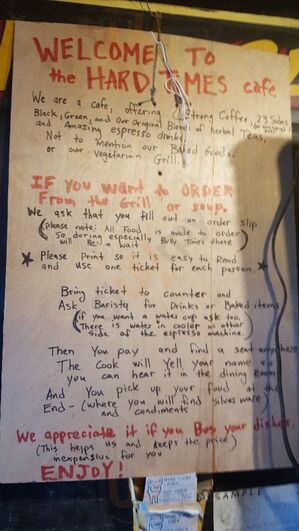 WELCOME TO
the HARD TIMES cafe
We are a cafe, offering Strong Coffee, 23 Sodas
Black, Green, and Our Original Blend of herbal Teas,
and Amazing espresso drinks
Not to mention our Baked Goods.
or our Vegetarian Grill.
IF You Want to ORDER
From the Grill or soup.
We ask that you fill out an order slip
(please note: All Food is made to order
So, during especially Busy Times there
will Be a wait)
★ Please Print so it is easy to Read
and use one ticket for each person. ★
Bring ticket to counter and
Ask Barista for Drinks or Baked items
(if you want a water cup ask too.
There is water in cooler on other
side of the espresso machine)
Then You Pay and find a seat anywhere
The Cook will Yell your name so
you can hear it in the dining room
And You pick up your food at the
End - (where you will find silverware)
and condiments
We appreciate it if you Bus your dishes.
(This helps us and keeps the price)
inexpensive for you
ENJOY!